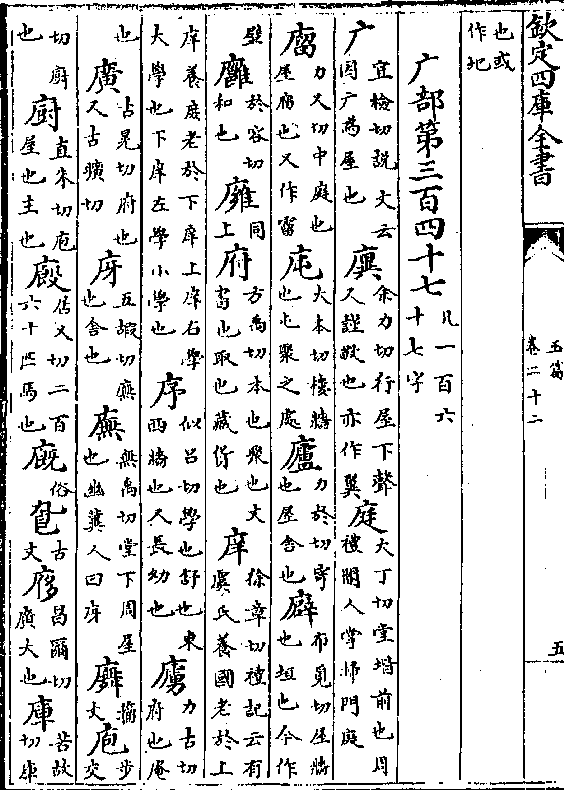 欽定四庫全書
玉篇
卷二十二
五
也或作圯
广部第三百四十七 凡一百六十七字
广 宜檢切説文云因广為屋也 廙 余力切行屋下聲又謹敬也亦作翼 庭 大丁切堂堦前也周禮閽人掌掃門庭
廇 力又切中庭也屋廇也又作霤 庉 大本切樓牆也屯聚之處 廬 力於切寄也屋舍也 廦 布覓切屋牆也垣也今作
壁 廱 於容切和也 雍 同上 府 方禹切本也聚也文書也取也藏貨也 庠 徐章切禮記云有虞氏養國老於上
庠養庶老於下庠上庠右學大學也下庠左學小學也 序 似吕切學也舒也東西牆也又長幼也 廘 力古切府也庵
也 廣 古晃切府也又古曠切 庌 五嫁切廡也舍也 廡 無禹切堂下周屋也幽冀人曰庌 籀文 庖 步交
切廚也 廚 直朱切庖屋也主也 廏 居又切二百六十匹馬也 廐 俗 古文 㢋 昌爾切廣大也 庫 苦故切車